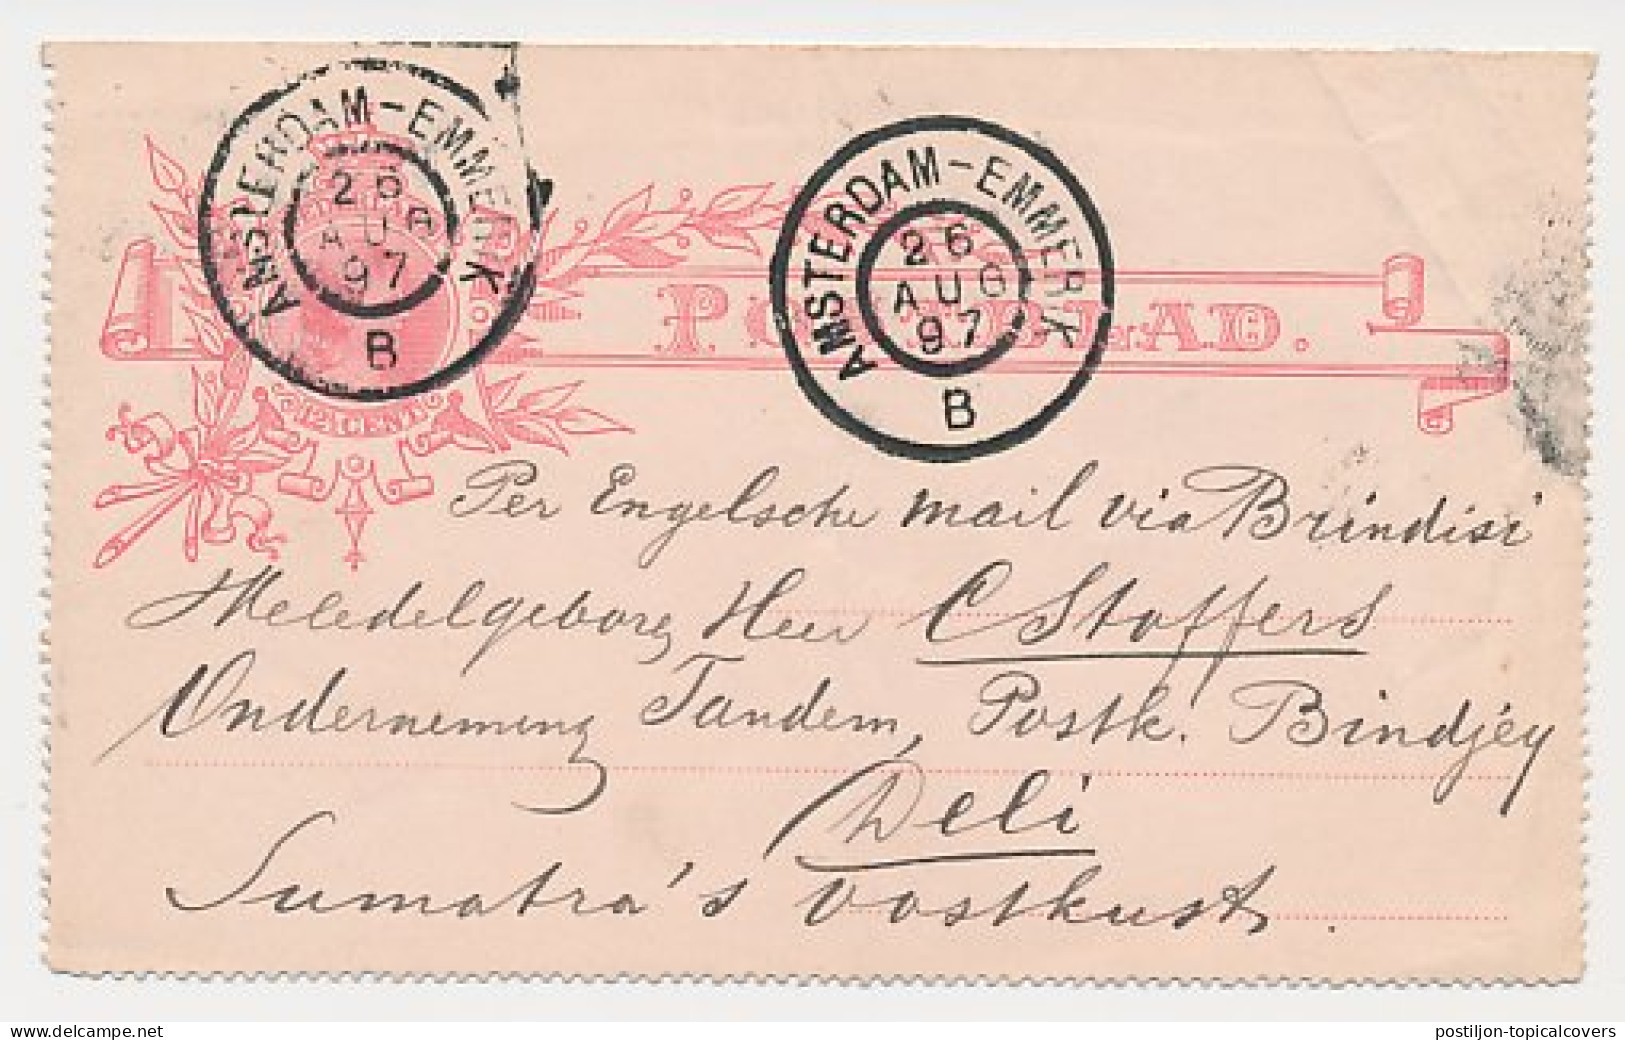 AMSTERDAM-EMMERIK
26
AUG
97
B
AMSTERDAM-EMMERIK
26
AUG
97
B
12½ CENT
Per Engelsche mail via Brindisi
Weledelgeboren Heer C Stoffers
Onderneming Tandem, Postk. Bindjey
Deli
Sumatra's Oostkust.
postiljon-topicalcovers